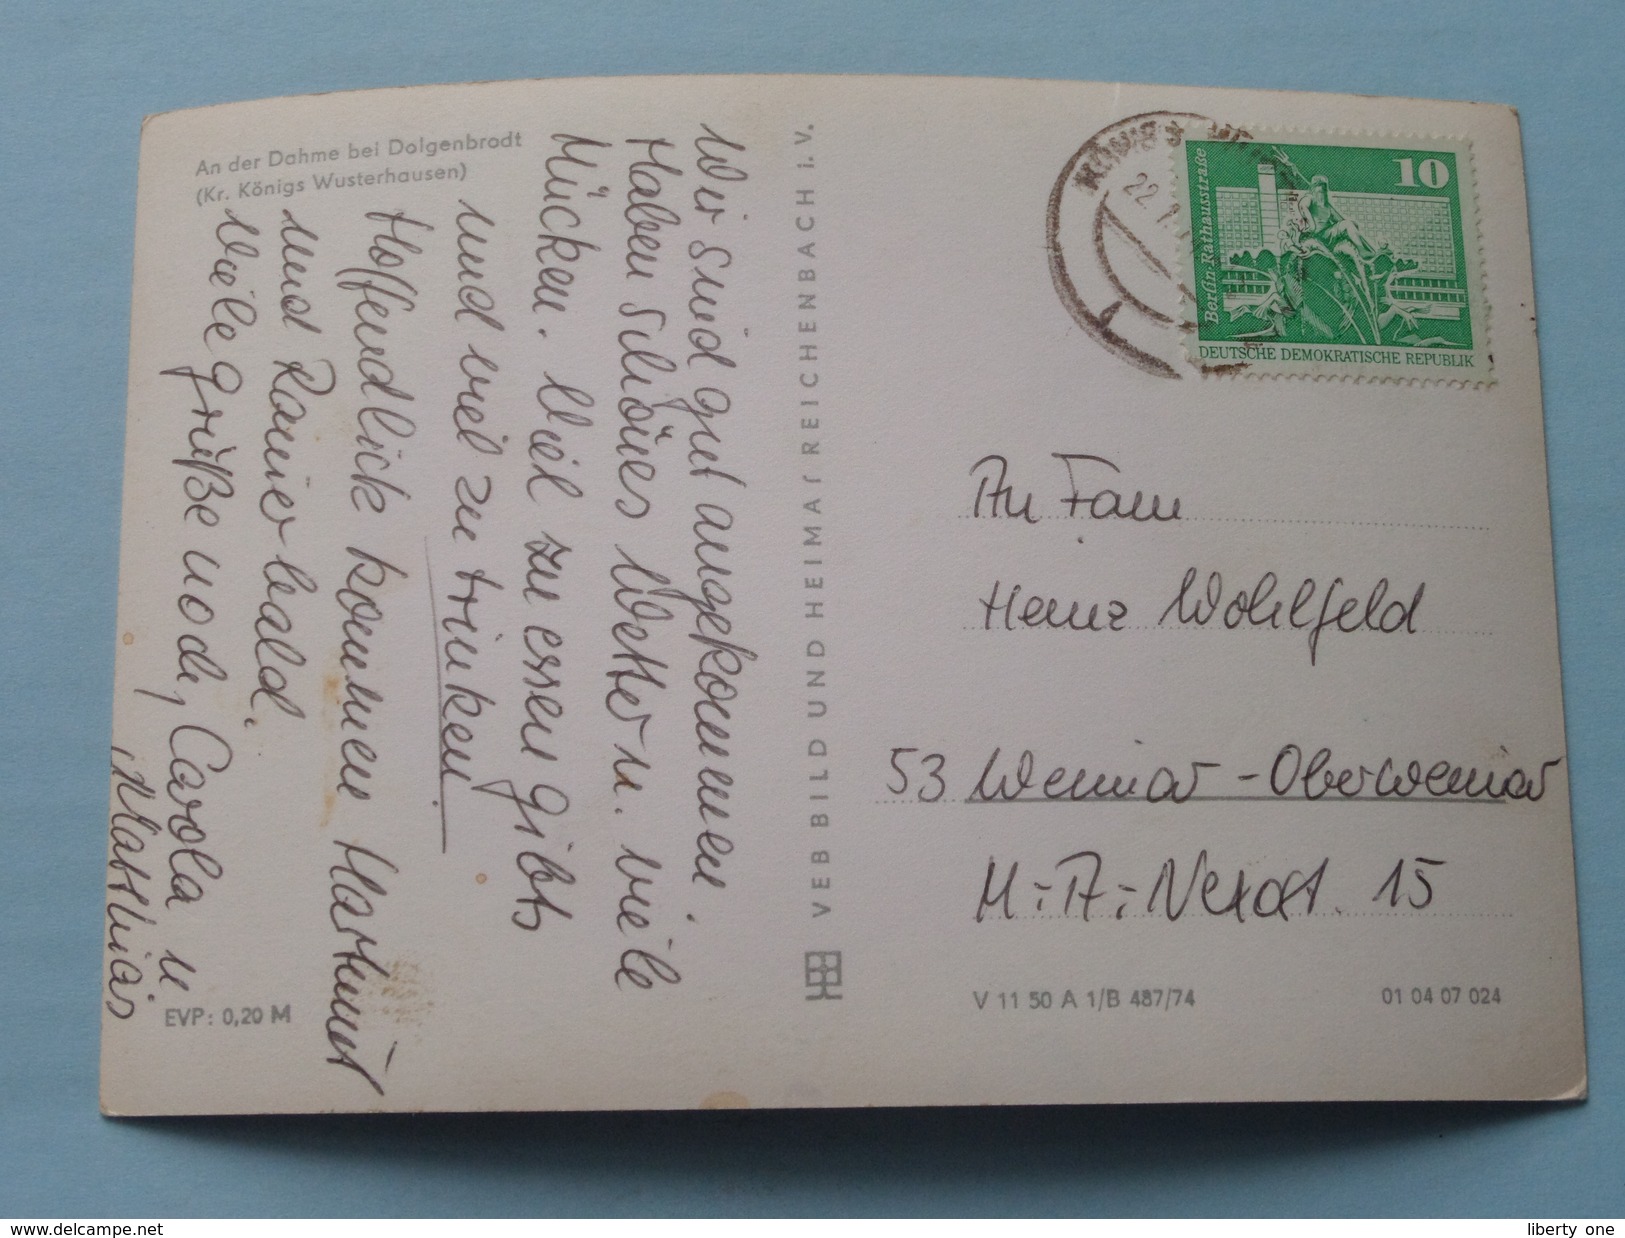 An der Dahme bei Dolgenbrodt
(Kr. Königs Wusterhausen)
Wir sind gut angekommen.
Haben schönes Wetter u. viele
Mücken. Viel zu essen gibts
und viel zu trinken
Hoffendlick kommen Hartmut
und Rainer bald.
Viele grüße noch, Carola u
Matthias
EVP: 0,20 M
VEB BILD UND HEIMAT REICHENBACH i. V.
22.
10
Berlin-Rathausstraße
DEUTSCHE DEMOKRATISCHE REPUBLIK
An Fam
Heinz Wohlfeld
53 Weimar - Oberweimar
M. A. Nexöst. 15
V 11 50 A 1/B 487/74
01 04 07 024
www.delcampe.net
liberty_one